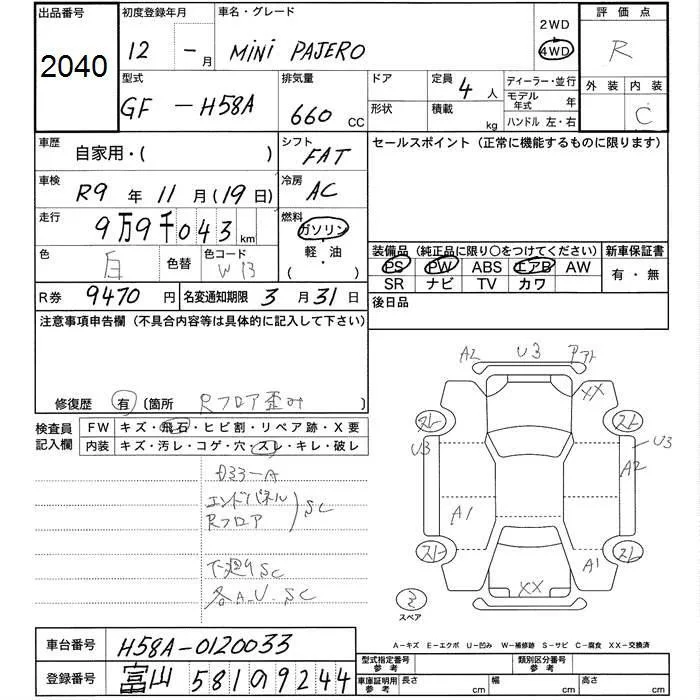 出品番号
2040
初度登録年月
12 - 月
車名・グレード
MINI PAJERO
2WD
4WD
評価点
R
外装 内装
C
型式
GF - H58A
排気量
660 CC
ドア
形状
定員 4 人
積載 kg
ディーラー・並行
モデル年式 年
ハンドル 左・右
車歴
自家用・( )
シフト
FAT
セールスポイント (正常に機能するものに限ります)
車検
R9 年 11 月 (19 日)
冷房
AC
走行
9万9千043 km
燃料
ガソリン
軽・油
( )
色
白
色替
色コード
W13
装備品 (純正品に限り○をつけてください)
PS PW ABS エアB AW
SR ナビ TV カワ
新車保証書
有・無
R券 9470 円
名変通知期限 3 月 31 日
後日品
注意事項申告欄 (不具合内容等は具体的に記入して下さい)
修復歴 有 (箇所 Rフロア歪み )
検査員記入欄
FW キズ・飛石・ヒビ割・リペア跡・X要
内装 キズ・汚レ・コゲ・穴・スレ・キレ・破レ
エンドパネル
Rフロア
SC
下廻りSC
各A.U.SC
A2 U3
XX
U3
U3
A2
A1
A1
XX
スペア
A-キズ E-エクボ U-凹み W-補修跡 S-サビ C-腐食 XX-交換済
車台番号 H58A-0120033
登録番号 富山 581 9244
型式指定番号
参考
類別区分番号
参考
車庫証明用
参考
長さ cm
幅 cm
高さ cm